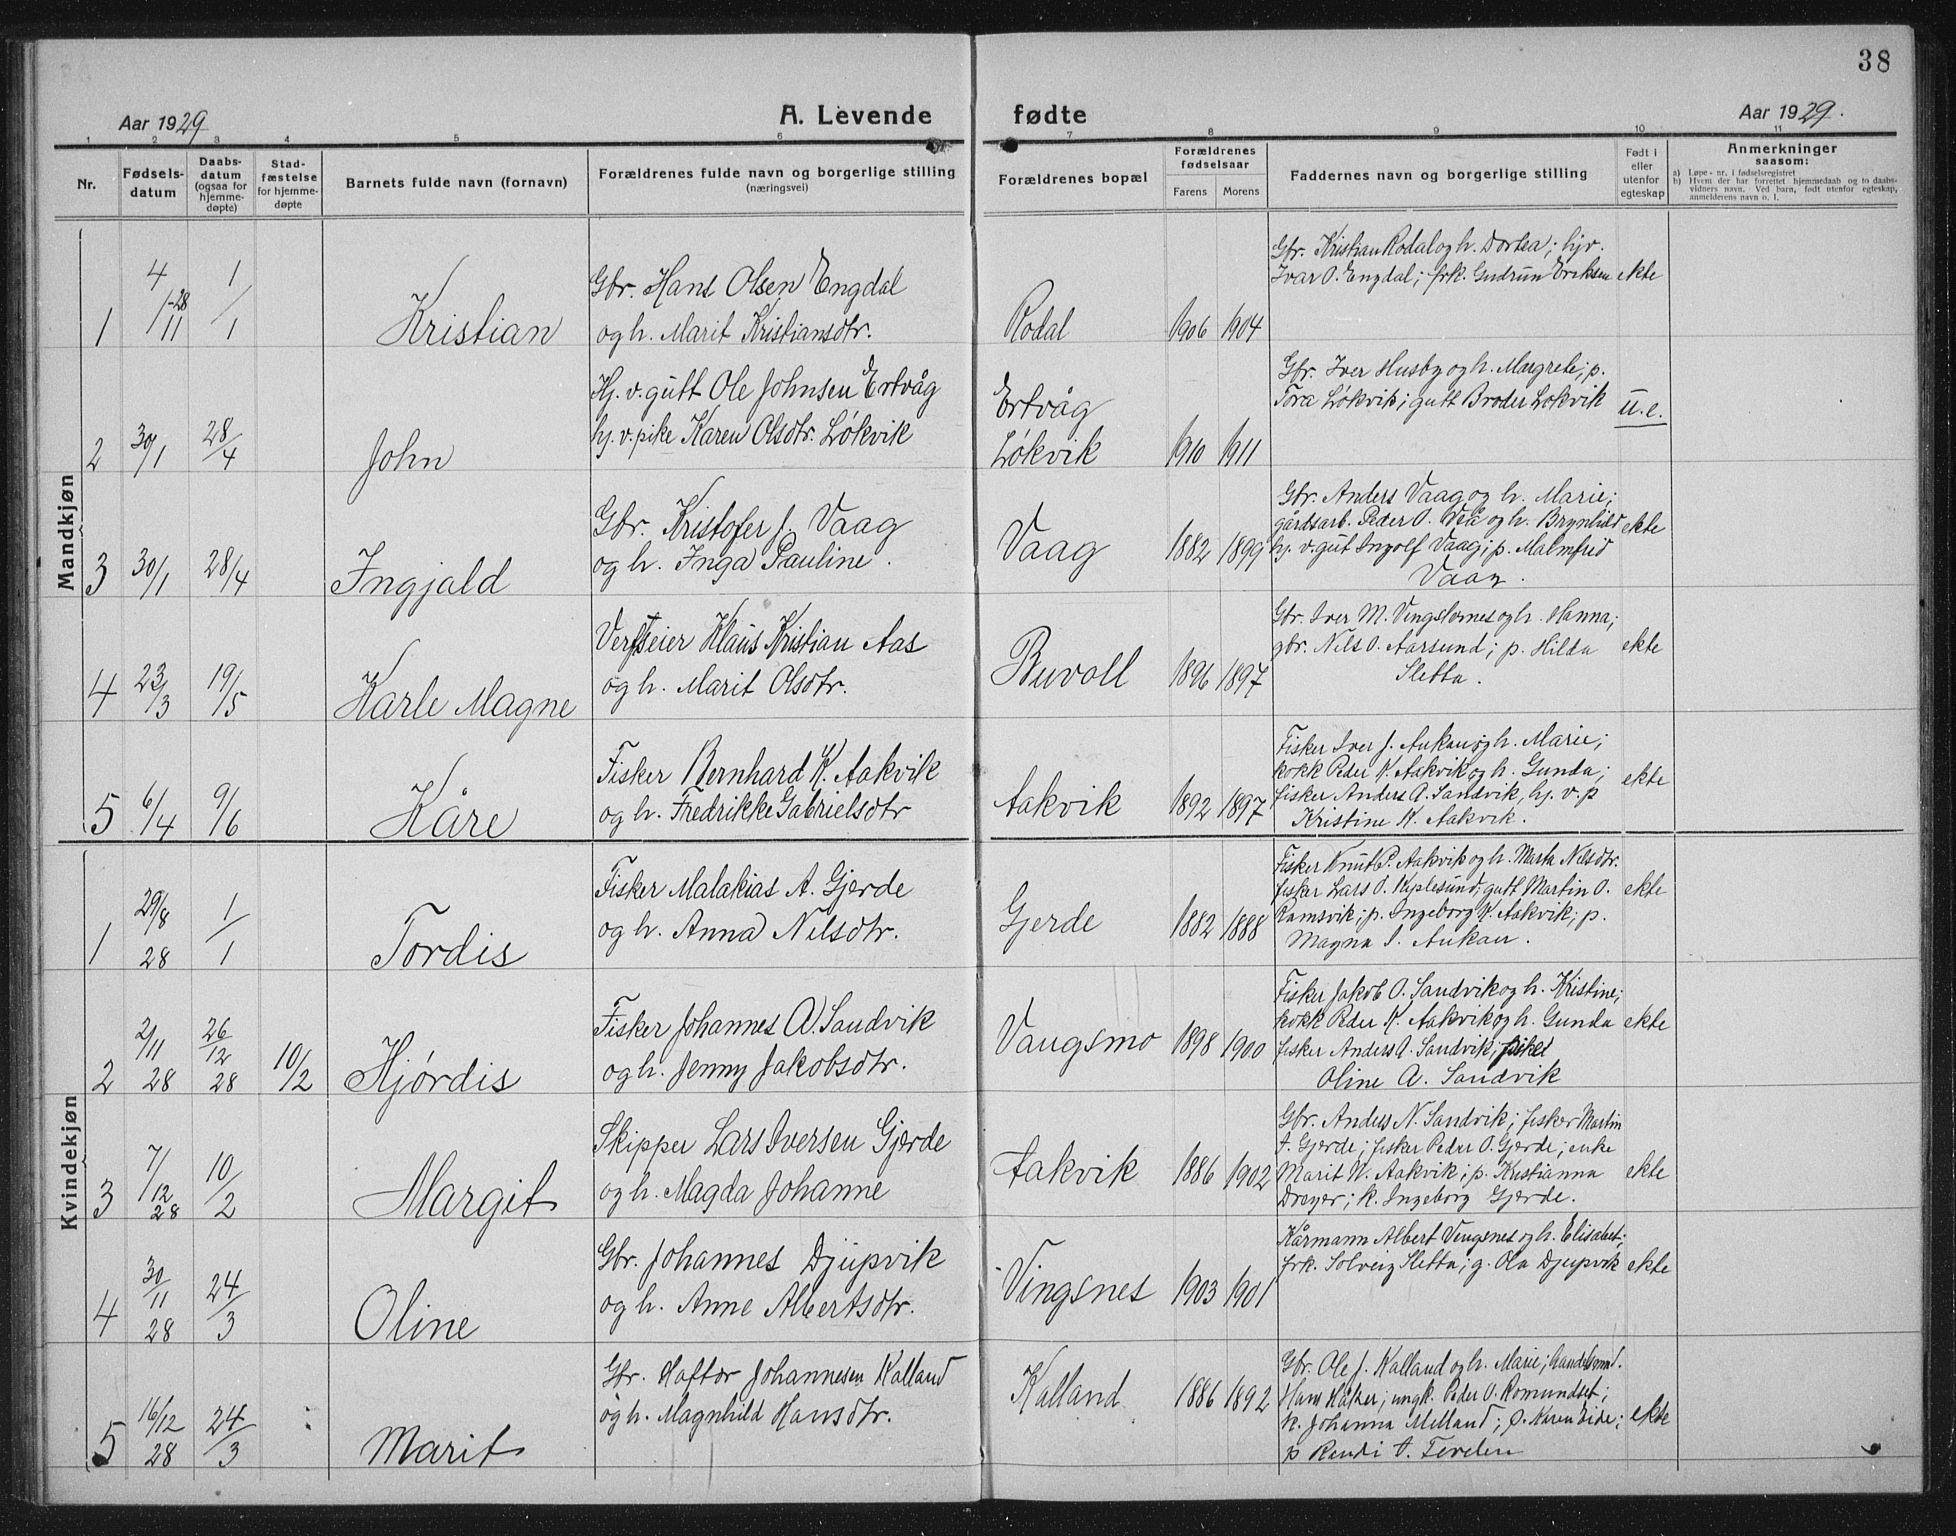 38
Aar 1929
A. Levende
fødte
Aar 1929.
1 2 3 4 5 6 7 8 9 10 11
Nr.
Fødsels-
datum
Daabs-
datum
(ogsaa for
hjemme-
døpte)
Stad-
fæstelse
for hjemme-
døpte
Barnets fulde navn (fornavn)
Forældrenes fulde navn og borgerlige stilling
(næringsvei)
Forældrenes bopæl
Forældrenes
fødselsaar
Farens
Morens
Faddernes navn og borgerlige stilling
Født i
eller
utenfor
egteskap
Anmerkninger
saasom:
a) Løpe-nr. i fødselsregistret
b) Hvem der har forrettet hjemmedaab og to daabs-
vidners navn. Ved barn, født utenfor egteskap,
anmelderens navn o. l.
Mandkjøn
1 4/11-28 1/1 Kristian
Gbr. Hans Olsen Engdal
og h. Marit Kristiansdtr.
Rodal 1906 1904
Gbr. Kristian Rodal og h. Dortea; hjv.
Ivar O. Engdal; frk. Gudrun Eriksen ekte
2 30/1 28/4 John
Hj. v. gutt Ole Johnsen Ertvåg
hj. v. pike Karen Olsdtr. Løkvik
Ertvåg
Løkvik 1910 1911
Gbr. Iver Husby og h. Margrete; p.
Tora Løkvik; gutt Broder Løkvik u.e.
3 30/1 28/4 Ingjald
Gbr. Kristofer J. Vaag
og h. Inga Pauline.
Vaag 1882 1899
Gbr. Anders Vaag og h. Marie;
gårdsarb. Peder O. Veiå og h. Brynhild ekte
hj. v. gut Ingolf Vaag; p. Malmfrid
Vaag.
4 23/3 19/5 Karle Magne
Verftseier Klaus Kristian Aas
og h. Marit Olsdtr.
Buvoll 1896 1897
Gbr. Iver M. Vingsternes og h. Hanna;
gbr. Nils O. Aarsund; p. Hilda ekte
Sletta.
5 6/4 9/6 Kåre
Fisker Bernhard K. Aakvik
og h. Fredrikke Gabrielsdtr
Aakvik 1892 1897
Fisker Iver J. Aukan og h. Marie;
kokk Peder K. Aakvik og h. Gunda; ekte
fisker Anders A. Sandvik, hj. v. p
Kristine K. Aakvik.
Kvindekjøn
1 29/8 28 1/1 Tordis
Fisker Malakias A. Gjerde
og h. Anna Nilsdtr.
Gjerde 1882 1888
Fisker Knut P. Aakvik og h. Marta Nilsdtr.
fisker Lars O. Kyplesund; gutt Martin O. ekte
Ramsvik; p. Ingeborg K. Aakvik; p.
Magna I. Aukan.
2 2/11 28 26/12 28 10/2 Hjørdis
Fisker Johannes A. Sandvik
og h. Jenny Jakobsdtr.
Vaagsmo 1898 1900
Fisker Jakob O. Sandvik og h. Kristine;
kokk Peder K. Aakvik og h. Gunda ekte
fisker Anders A. Sandvik;
Oline A. Sandvik
3 7/12 28 10/2 Margit
Skipper Lars Iversen Gjerde
og h. Magda Johanne
Aakvik 1886 1902
Gbr. Anders N. Sandvik; fisker Martin
A. Gjerde; fisker Peder O. Gjerde; enke
Marit N. Aakvik; p. Kristianna ekte
Dreyer; k. Ingeborg Gjerde.
4 30/11 28 24/3 Oline
Gbr. Johannes Djupvik
og h. Anne Albertsdtr.
Vingsnes 1903 1901
Kårmann Albert Vingsnes og h. Elisabet;
frk. Solveig Sletta; g. Ola Djupvik ekte
5 16/12 28 24/3 Marit
Gbr. Haftor Johannesen Kalland
og h. Magnhild Hansdtr.
Kalland 1886 1892
Gbr. Ole J. Kalland og h. Marie; handelsmd.
Hans; ungk. Peder O. Romundset;
k. Johanna Melland; p. Karen Eide; ekte
p Randi A. Tevelen